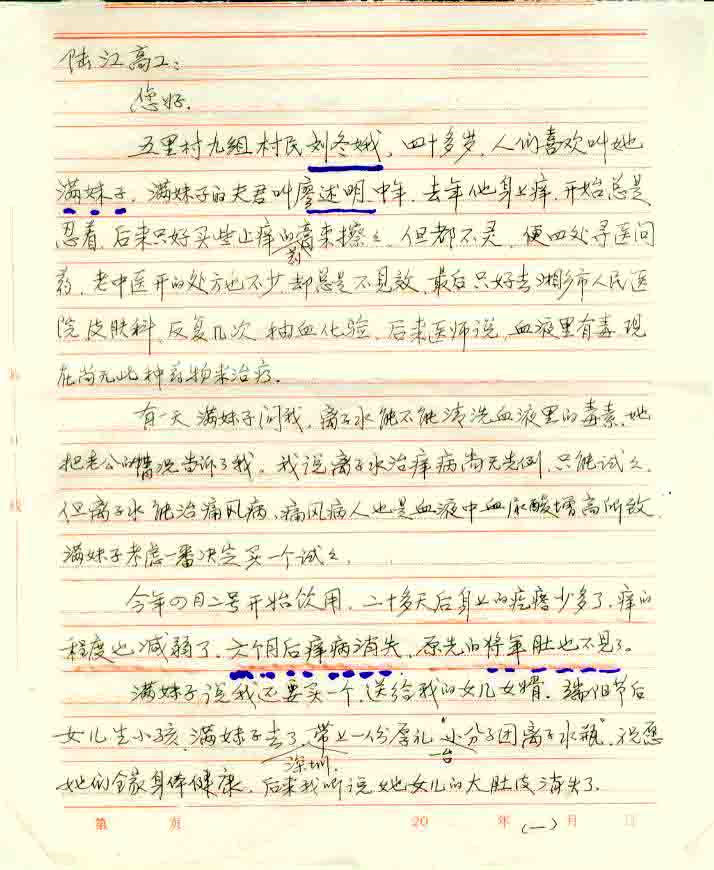 陆江高工：
您好.
五里村九组村民刘冬娥，四十多岁，人们喜欢叫她
满妹子，满妹子的夫君叫廖述明，中年，去年他身上痒，开始总是
忍着，后来只好买些止痒的药膏来擦之，但都不灵，便四处寻医问
药，老中医开的处方也不少，却总是不见效，最后只好去湘乡市人民医
院皮肤科，反复几次抽血化验，后来医师说，血液里有毒，现
在尚无此种药物来治疗.
有一天满妹子问我，离子水能不能清洗血液里的毒素，她
把老公的情况告诉了我，我说离子水治痒病尚无先例，只能试之，
但离子水能治痛风病，痛风病人也是血液中血尿酸增高所致，
满妹子考虑一番决定买一个试之.
今年四月二号开始饮用，二十多天后身上的疙瘩少多了，痒的
程度也减弱了，六个月后痒病消失，原先的将军肚也不见了。
满妹子说我还要买一个，送给我的女儿女婿，端阳节后
女儿生小孩，满妹子去了深圳，带上一份厚礼"一台小分子团离子水瓶"，祝愿
她们全家身体健康，后来我听说她女儿的大肚皮消失了.
第 页 20 年 (一) 月 日